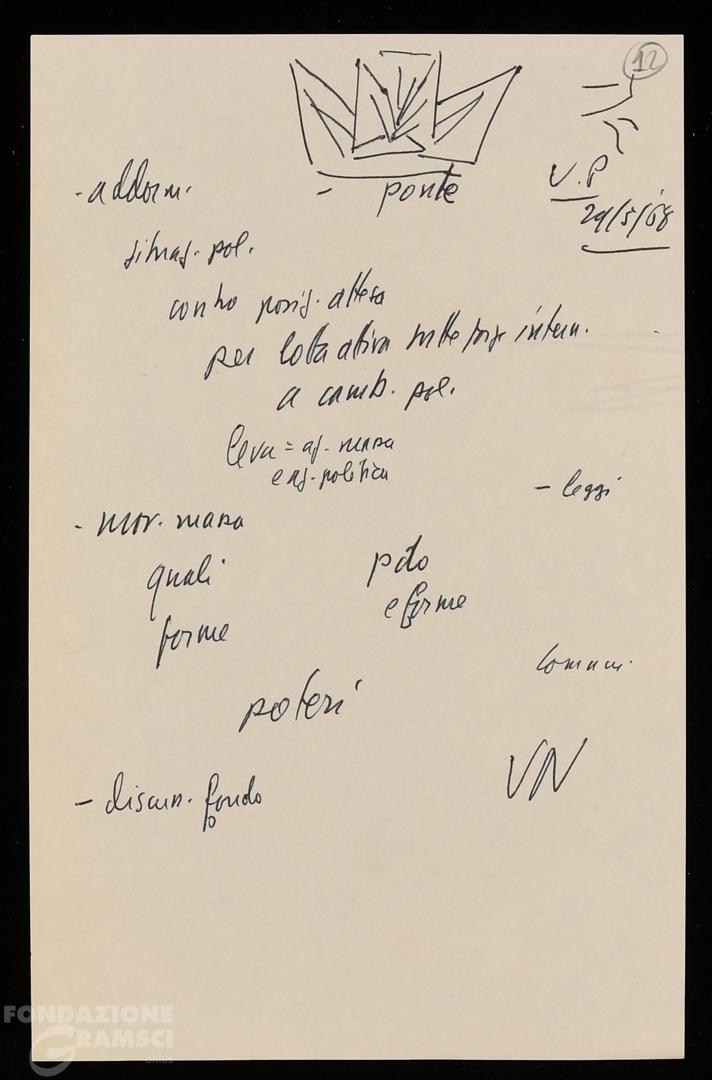 12
- ponte
U.P
29/5/68
- addorm.
situaz. pol.
contro posiz. attesa
per lotta attiva intern.
a camb. pol.
leva = az. massa
e az. politica
- leggi
- mov. massa
quali
pdo
forme
e forme
comuni.
poteri
VN
- discuss. fondo
FONDAZIONE
GRAMSCI